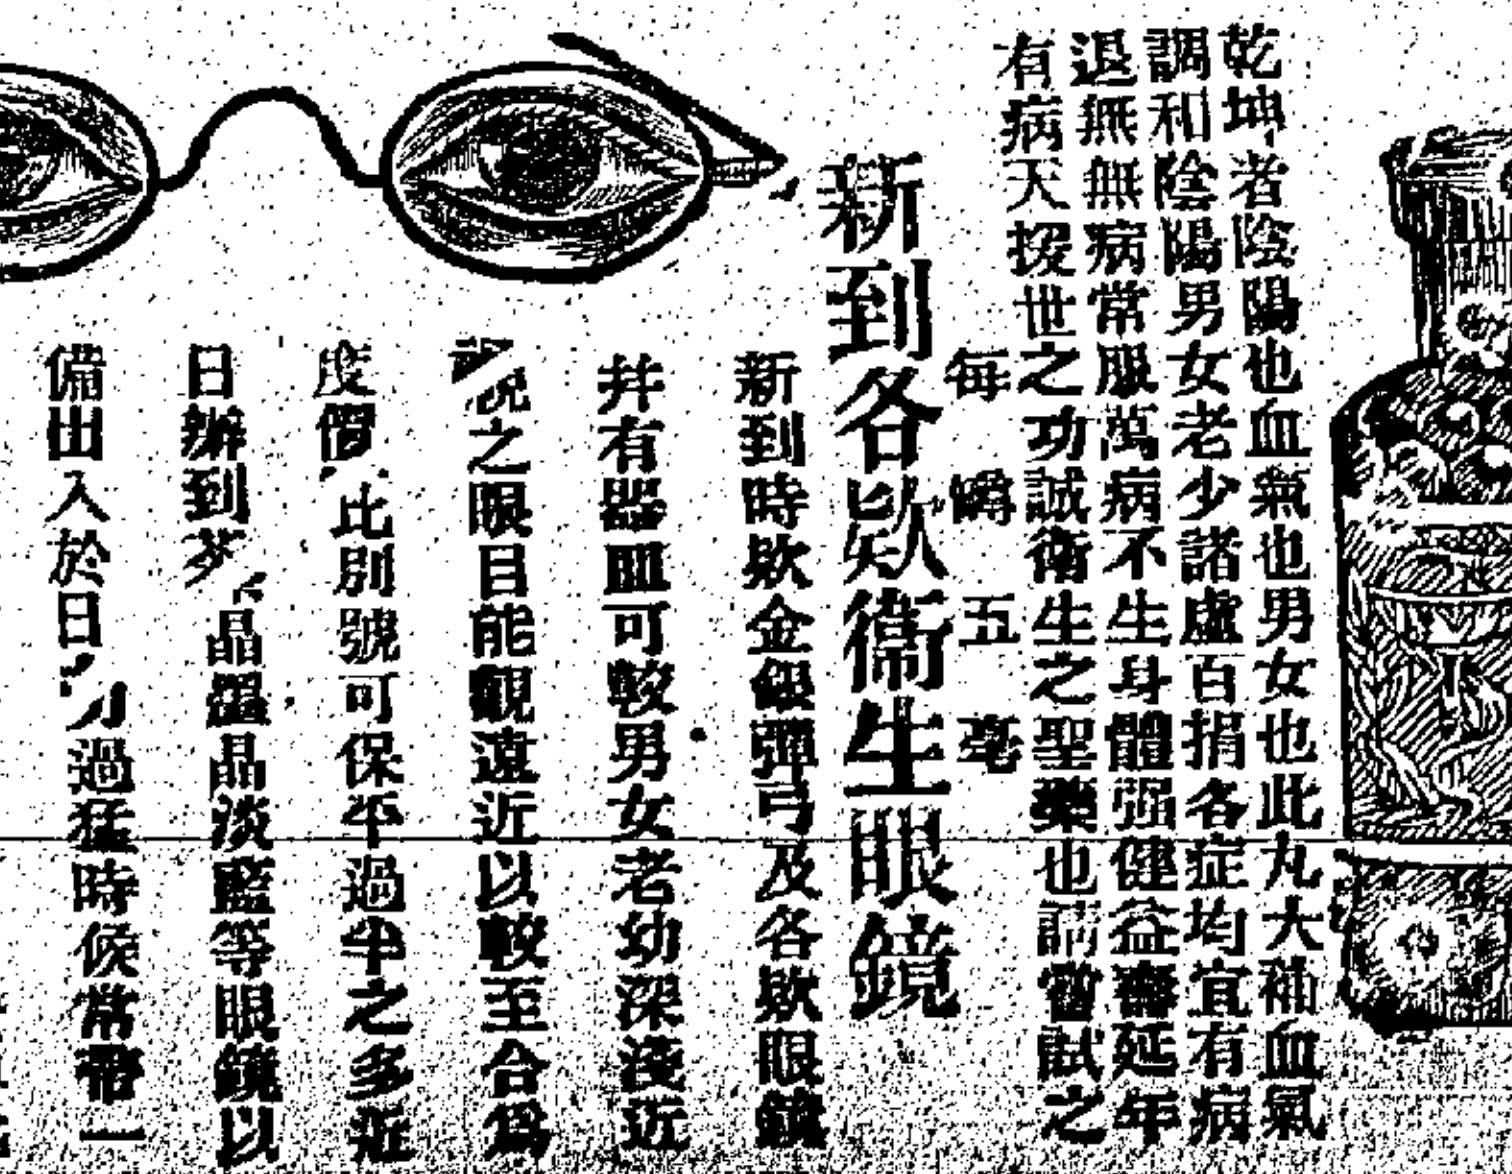 乾坤者陰陽也血氣也男女也此丸大補血氣
調和陰陽男女老少諸虛百損各症均宜有病
退無無病常服萬病不生身體强健益壽延年
有病天授世之功誠衛生之聖藥也請嘗試之
每 罇 五 毫
新到各欵衛生眼鏡
新到時欵金銀彈弓及各欵眼鏡
井有器皿可較男女老幼深淺近
視之眼目能觀遠近以較至合爲
度 比別號可保平過半之多近
日辦到 晶墨晶淡藍等眼鏡以
備出入於日 過猛時候常帶一